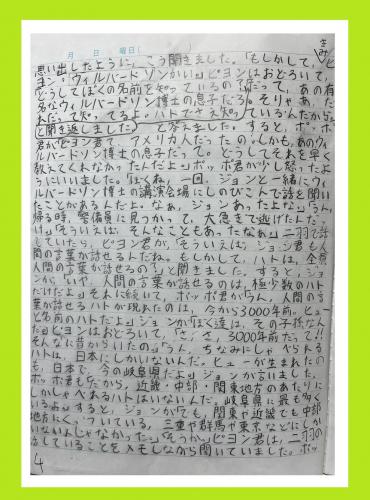 月 日 曜日(
思い出したように、こう聞きました。「もしかして、きみ、ピ
ヨン・ウィルバードソンかい。」ピヨンはおどろいて、
どうしてぼくの名前を知っているの」「だって、あの有
名なウィルバードソン博士の息子だろ。そりゃあ、だ
れだって知ってるよ。ハトでさえ知っているんだから。」
と聞き返しました。と答えました。すると、ポッポ
君が「ピヨン君て、アメリカ人だったの。しかも、あのウィ
ルバードソン博士の息子だって。どうしてそれを早く
教えてくれなかったんだよ。」ポッポ君が少し怒ったよ
うにいいました。「ぼくね、一回、ジョンと一緒にウィ
ルバードソン博士の講演会場にしのびこんで話を聞い
たことがあるんだよ。なあ、ジョン、あったよな。」「うん。
帰る時、警備員に見つかって、大急ぎで逃げたんだっ
け。」「そういえば、そんなこともあったなあ。」二羽で話
していたら、ピヨン君が、「そういえば、ジョン君も人
間の言葉が話せるんだね。もしかして、ハトは、全部
人間の言葉が話せるの」と聞きました。すると、ジョ
ンが、「いや、人間の言葉が話せるのは、極少数のハト
だけだよ。」それに続いて、ポッポ君が「うん、人間の言
葉が話せるハトが現れたのは、今から3000年前。ヒュー
と名前のハトだよ。」ジョンが「ぼく達は、その子孫なん
だ。」ピヨンはおどろいて、「さ、さ、3000年前だって!!
そんなに昔からいたの」「うん、ちなみにしゃべられる
ハトは、日本にしかいないんだ。ヒューが生まれたの
も、日本で、今の岐阜県だよ。」ジョンが言いました。
ポッポ君も「だから、近畿・中部・関東地方のあたりに
しかしゃべれるハトはいないんだ。岐阜県に最も多く
いるよ。」すると、ジョンが「でも、関東や近畿でも中部
地方にくっついている、三重や群馬や東京などにしか
いないんじゃなかった。」「そうか。」ピヨン君は、二羽の
話していることをメモしながら聞いていました。ポッ
4